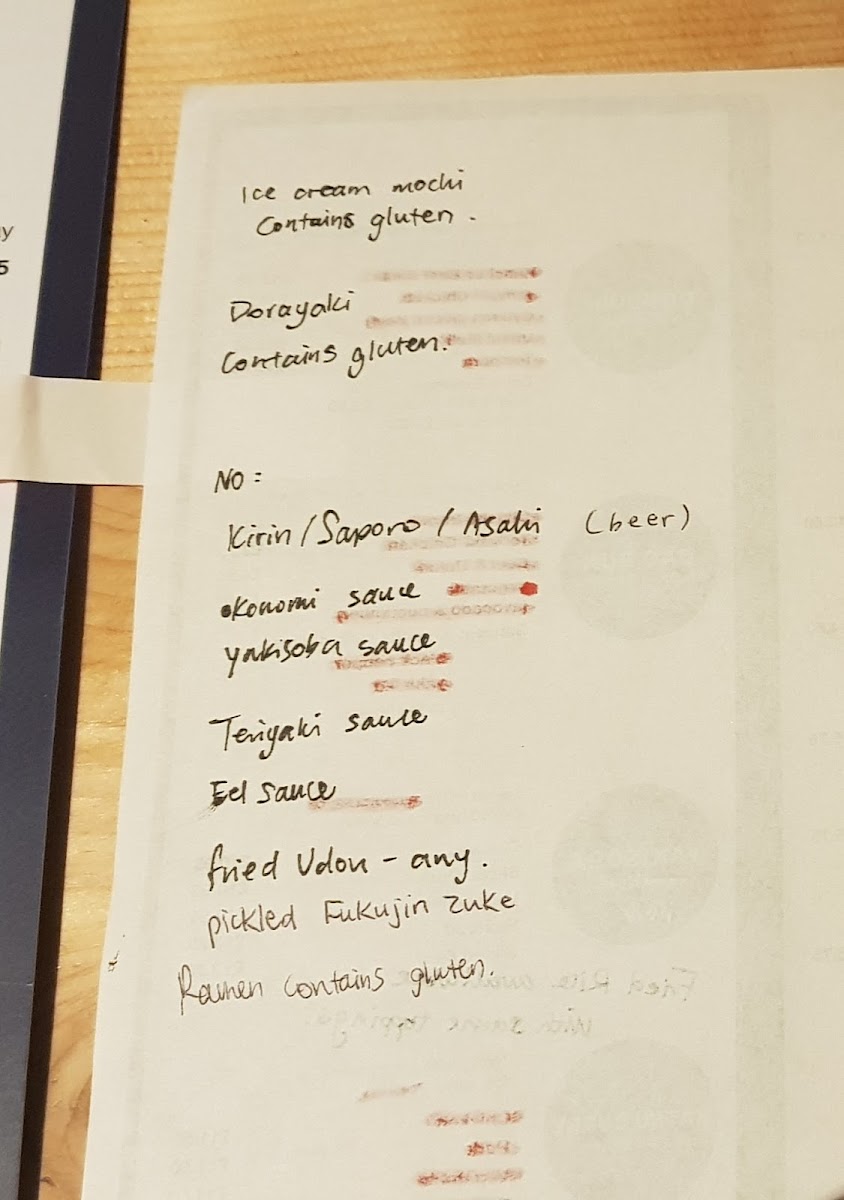 Ice cream mochi
Contains gluten.
Dorayaki
Contains gluten.
NO:
Kirin/Saporo/Asahi (beer)
okonomi sauce
yakisoba sauce
Teriyaki sauce
Eel sauce
fried Udon - any.
pickled Fukujin zuke
Ramen contains gluten.
Fried Rice
with same toppings
y
5